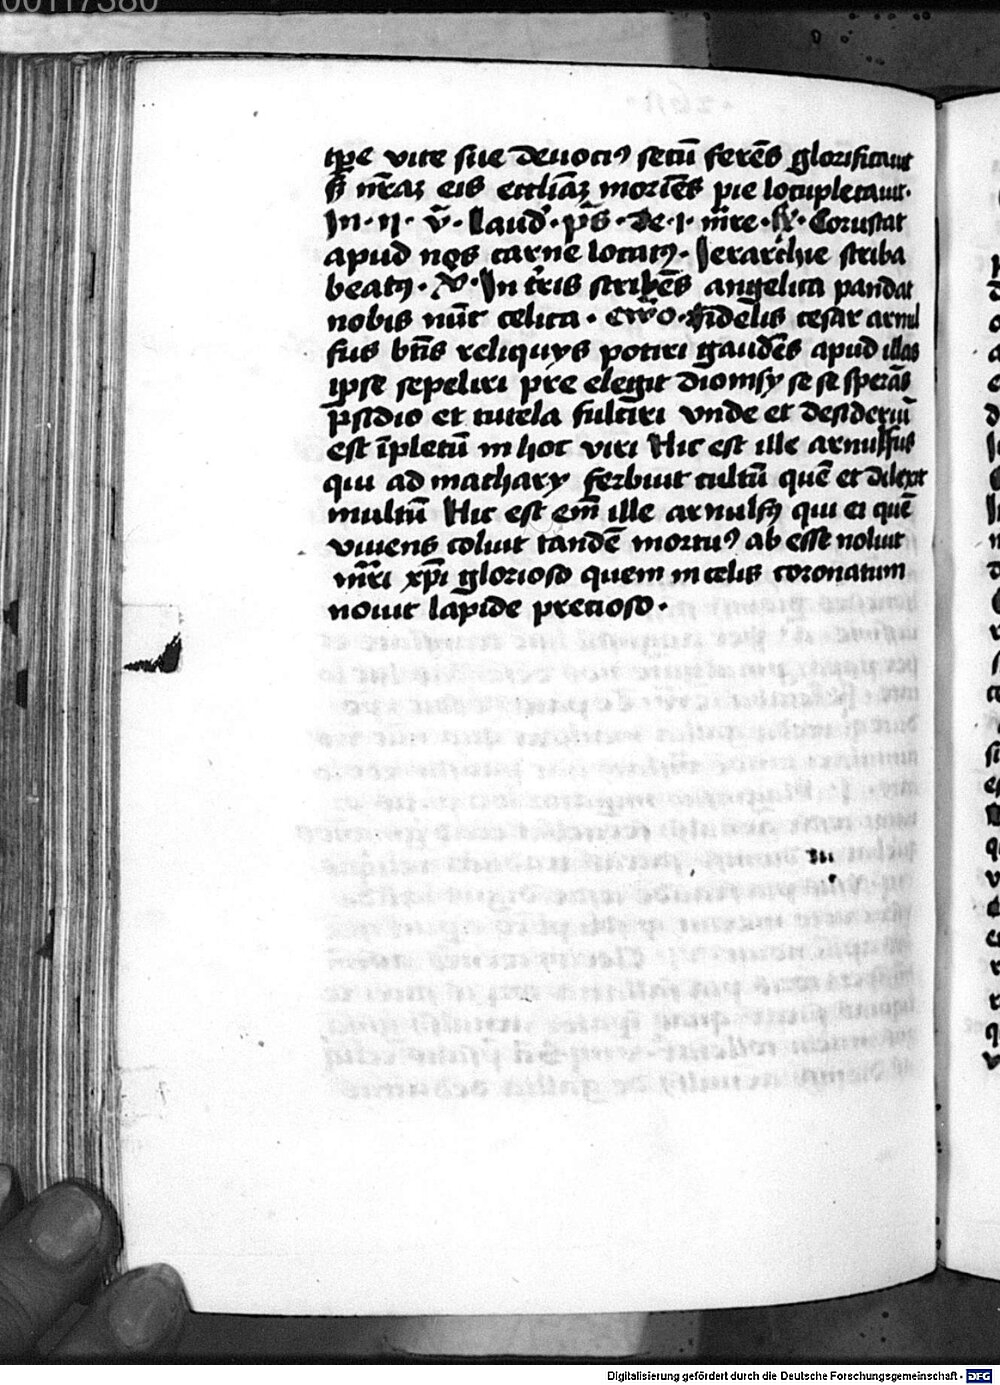 00117380
tp̄e vite sue deuoti⁹ secū ferēs glorificauit
s̄ nr̄aꝫ eis eccliāꝫ moriēs pie locupletauit·
In·ij·v̄·laud̄·ps̄·de·i·mr̄e· Coruscat
apud nos carne locat⁹· Jerarchie scriba
beat⁹· In tr̄is scribēs angelica pandat
nobis nūc celica· euo·Fidelis cesar arnul
fus btīs reliquijs potiri gaudēs apud illas
ipse sepeliri pre elegit dionisij se se sperās
p̄sidio et tutela fulciri vnde et desideriū
est īpletū in hoc viri Hic est ille arnulfus
qui ad mathary ferbuit cultū quē et dilexit
multū Hic est em̄ ille arnulf⁹ qui ei quē
viuens coluit tandē mortu⁹ ab esse noluit
mr̄i xp̄i glorioso quem in celis coronatum
nouit lapide precioso·
Digitalisierung gefördert durch die Deutsche Forschungsgemeinschaft - DFG